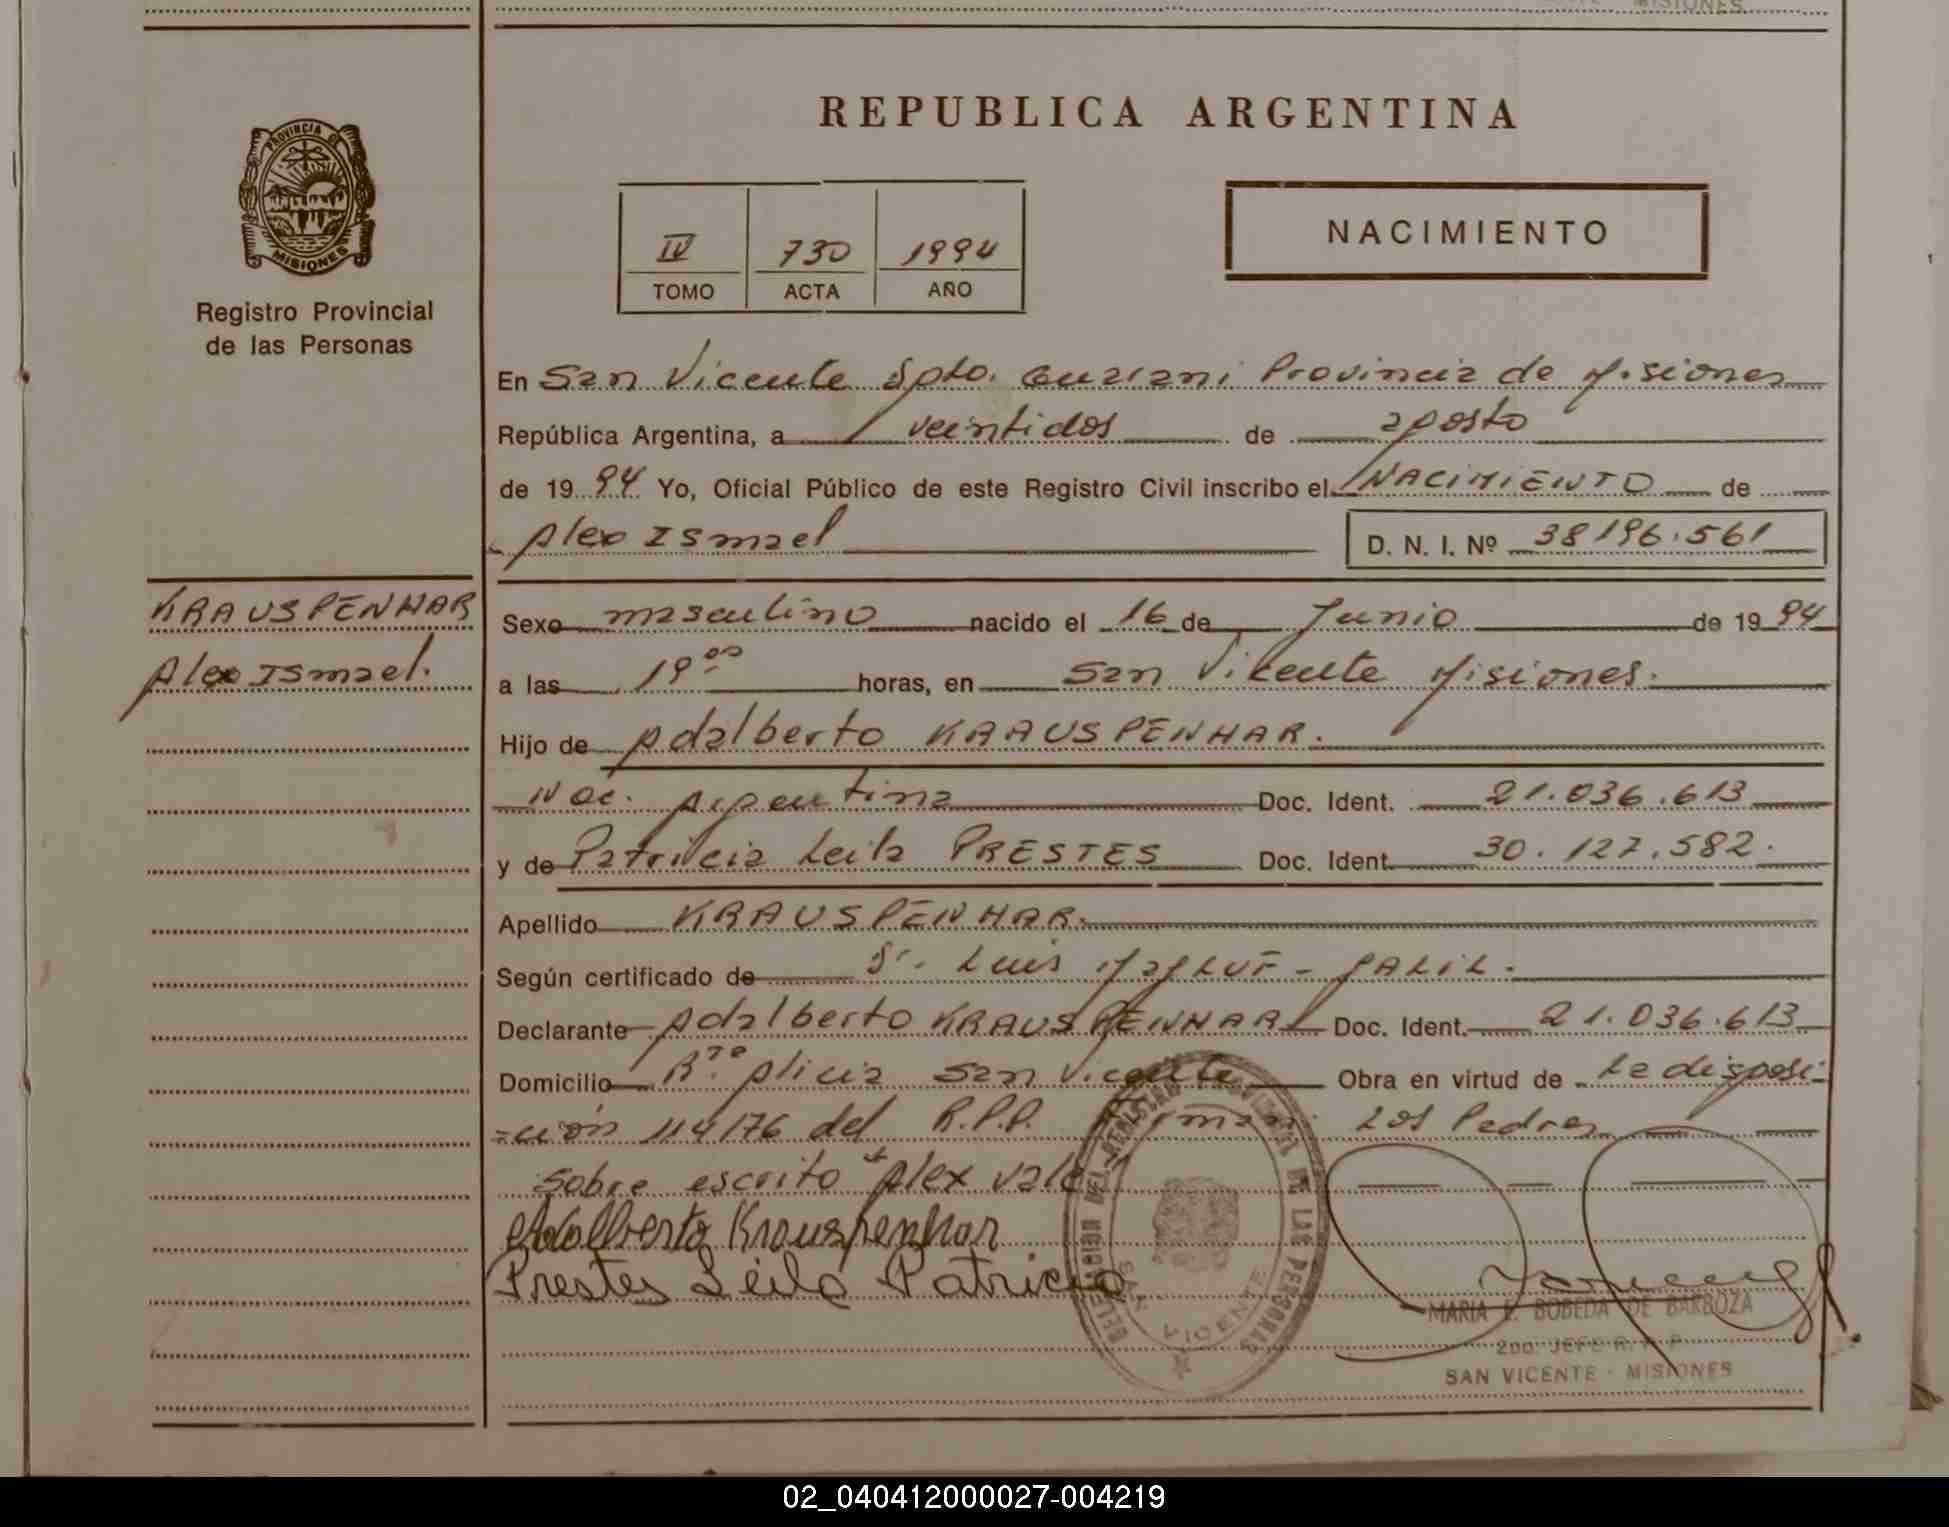 MISIONES
REPUBLICA ARGENTINA
PROVINCIA DE
MISIONES
Registro Provincial
de las Personas
IV 730 1994
TOMO ACTA AÑO
NACIMIENTO
En San Vicente Dpto. Guarani Provincia de Misiones
República Argentina, a veintidos de agosto
de 1994 Yo, Oficial Público de este Registro Civil inscribo el NACIMIENTO de
Alex Ismael D. N. I. Nº 38196.561
KRAUSPENHAR
Alex Ismael.
Sexo masculino nacido el 16 de Junio de 1994
a las 19 00 horas, en San Vicente Misiones.
Hijo de Adalberto KRAUSPENHAR.
Nac. Argentina Doc. Ident. 21.036.613
y de Patricia Leila PRESTES Doc. Ident. 30.127.582.
Apellido KRAUSPENHAR.
Según certificado de Dr. Luis MaGLUF - JALIL.
Declarante Adalberto KRAUSPENHAR Doc. Ident. 21.036.613
Domicilio Alicia San Vicente Obra en virtud de La disposi
=ción 114/76 del R.P.P. Firman Los Padres
sobre escrito Alex vale
Adalberto Krauspenhar
Prestes Leila Patricia
DELEGACION DEL REGISTRO PROVINCIAL DE LAS PERSONAS
SAN VICENTE
MARIA E. BOBEDA DE BARBOZA
2DO. JEFE R. P. P.
SAN VICENTE - MISIONES
02_040412000027-004219